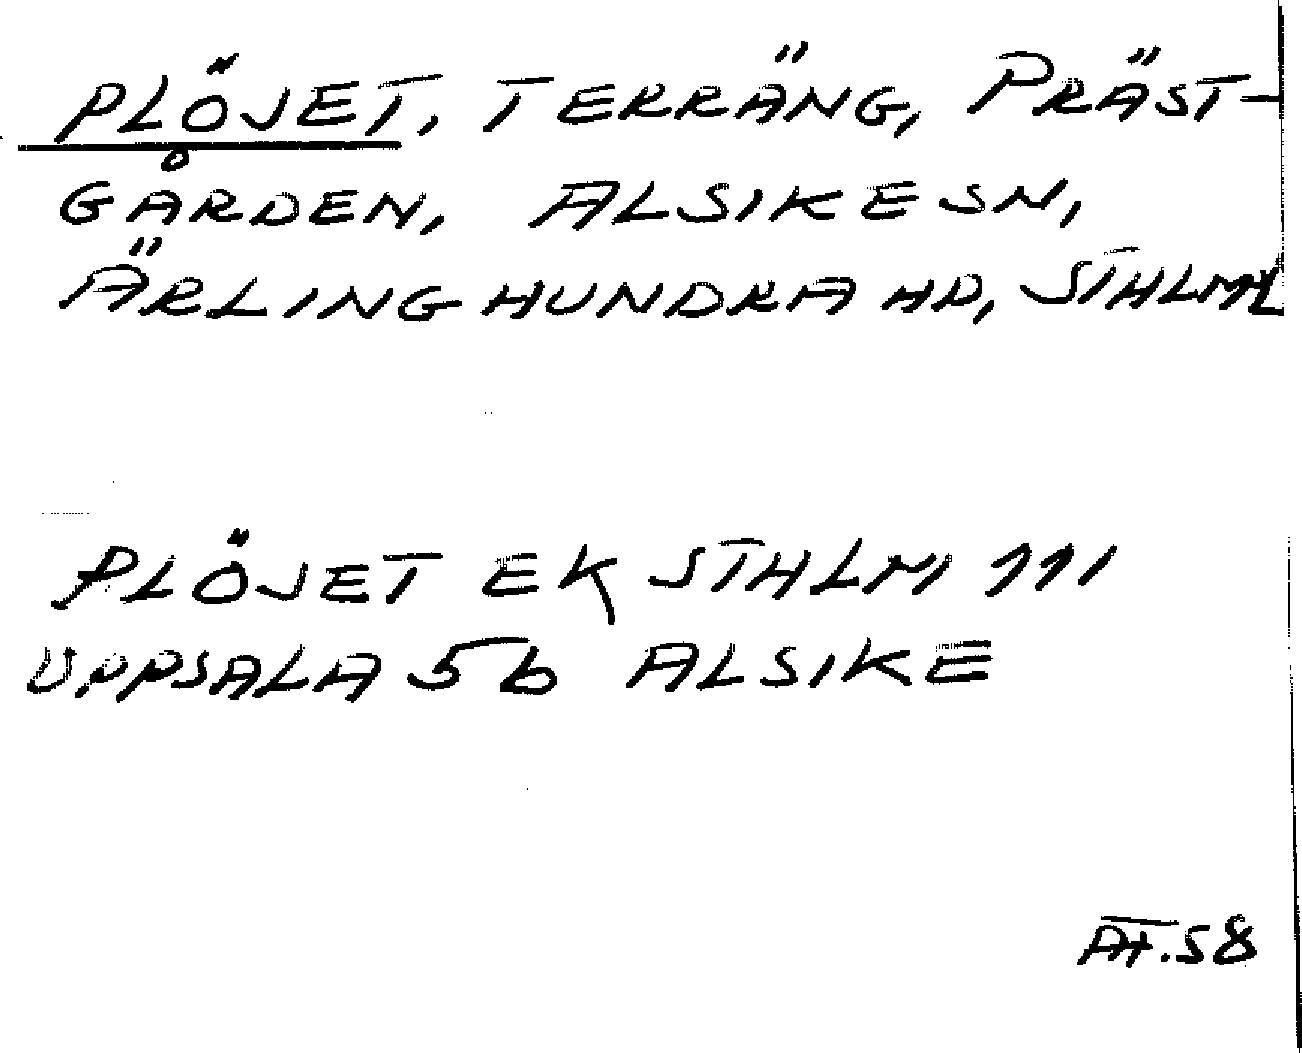 PLÖJET, TERRÄNG, PRÄST-
GÅRDEN, ALSIKE SN,
ÄRLINGHUNDRA HD, STHLM L
PLÖJET EK STHLM 111
UPPSALA 5b ALSIKE
PÅT.58